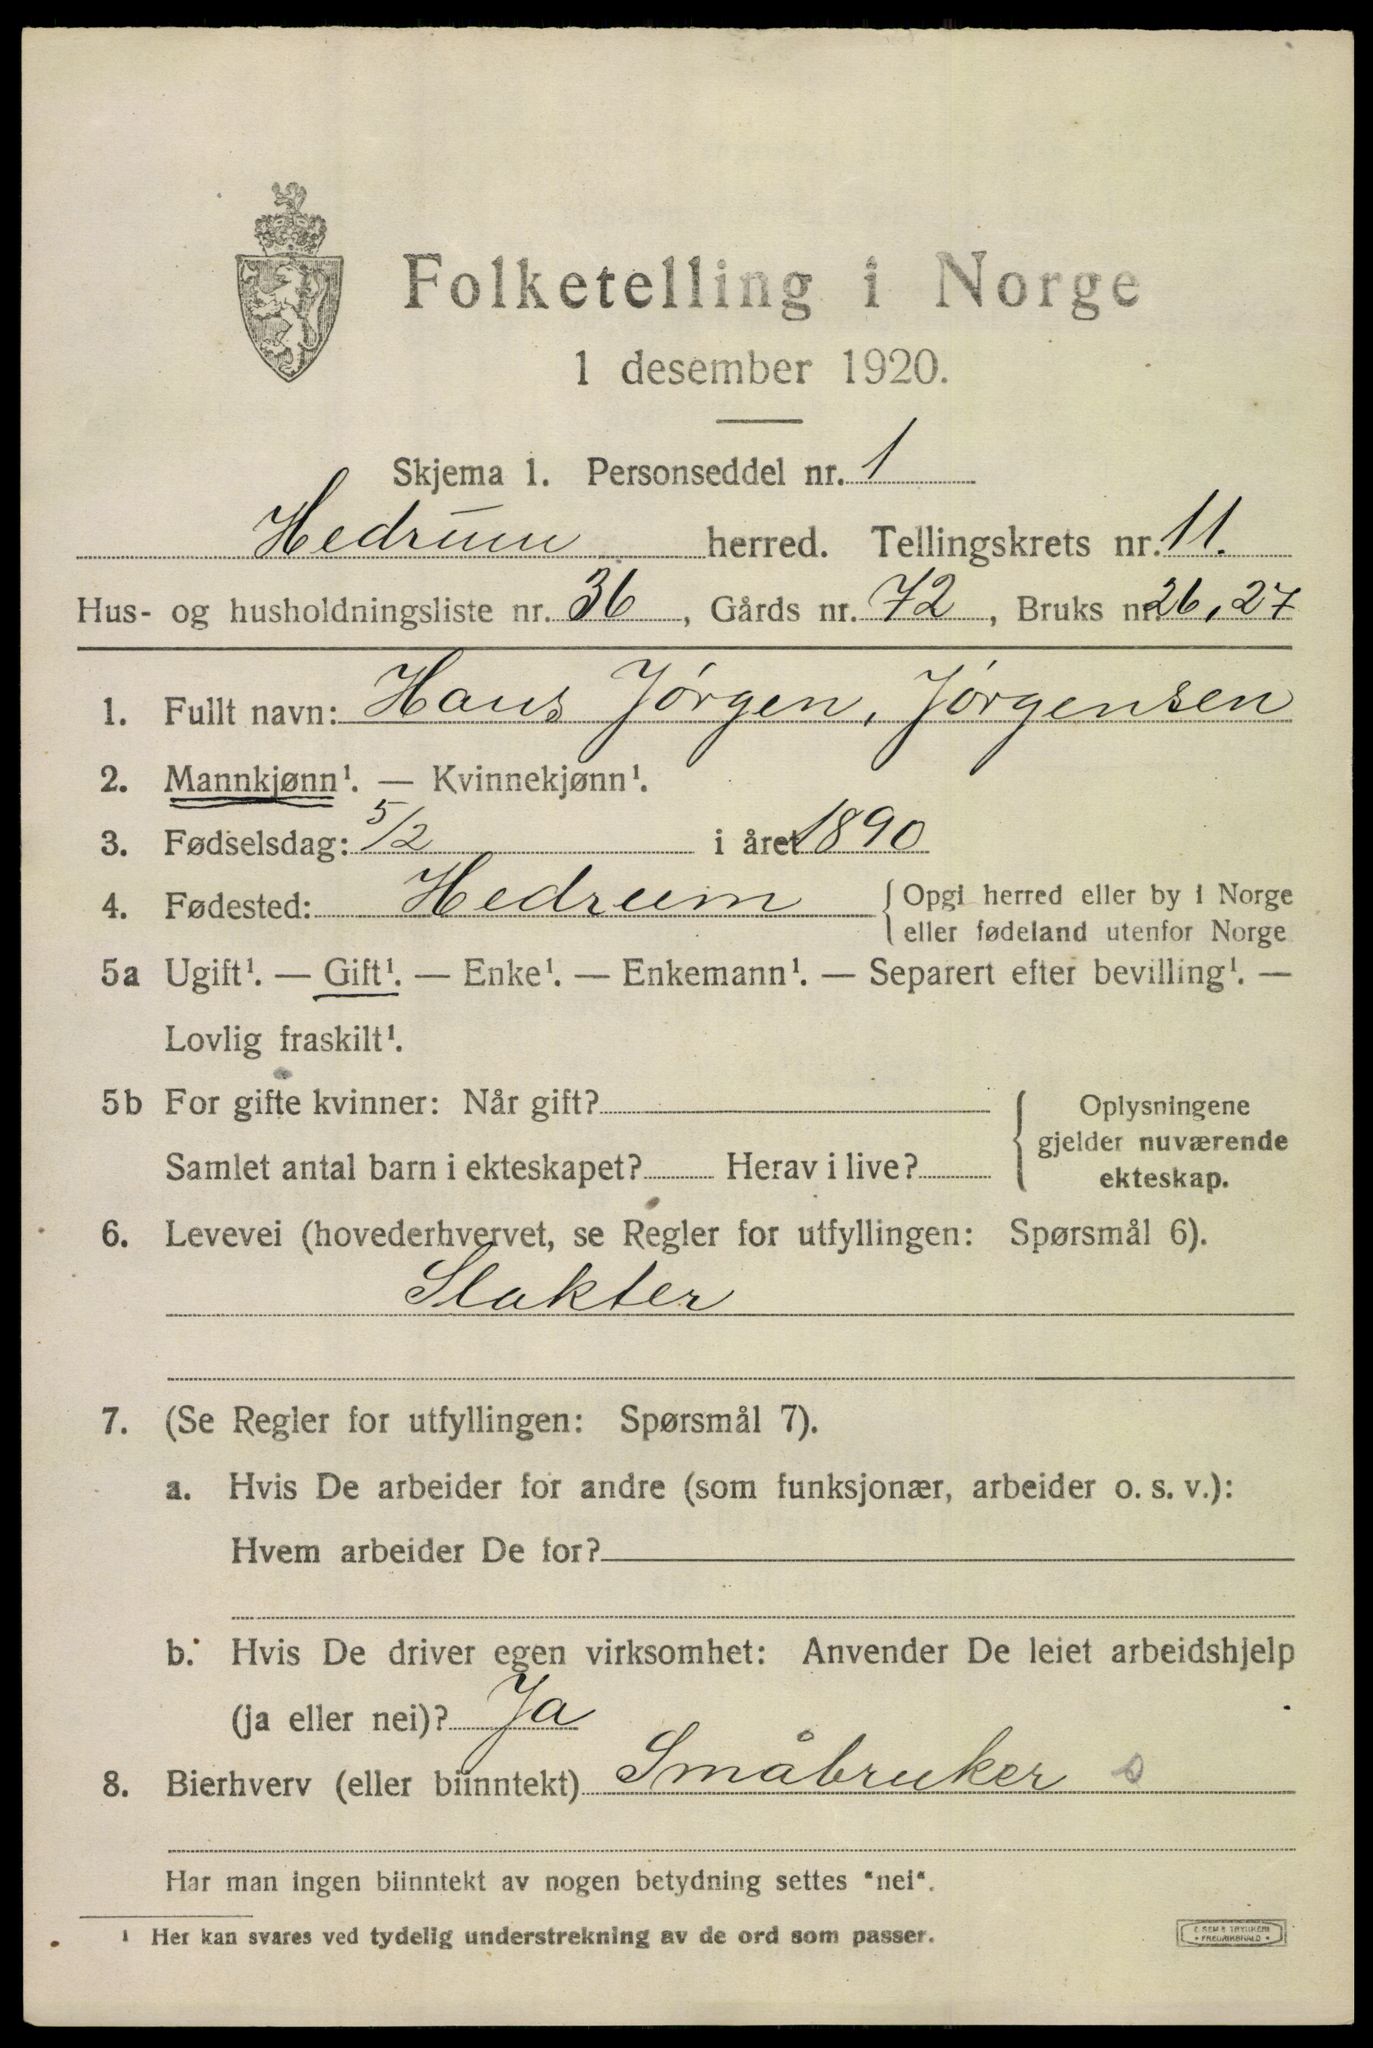 Folketelling i Norge
1 desember 1920.
Skjema 1. Personseddel nr. 1
Hedrum herred. Tellingskrets nr. 11.
Hus- og husholdningsliste nr. 36, Gårds nr. 72, Bruks nr. 26, 27
1. Fullt navn: Hans Jørgen, Jørgensen
2. Mannkjønn¹. — Kvinnekjønn¹.
3. Fødselsdag: 5/2 i året 1890
4. Fødested: Hedrum { Opgi herred eller by i Norge
eller fødeland utenfor Norge
5a Ugift¹. — Gift¹. — Enke¹. — Enkemann¹. — Separert efter bevilling¹. —
Lovlig fraskilt¹.
5b For gifte kvinner: Når gift?
Samlet antal barn i ekteskapet? Herav i live?
{ Oplysningene
gjelder nuværende
ekteskap.
6. Levevei (hovederhvervet, se Regler for utfyllingen: Spørsmål 6).
Slakter
7. (Se Regler for utfyllingen: Spørsmål 7).
a. Hvis De arbeider for andre (som funksjonær, arbeider o. s. v.):
Hvem arbeider De for?
b. Hvis De driver egen virksomhet: Anvender De leiet arbeidshjelp
(ja eller nei)? Ja
8. Bierhverv (eller biinntekt) Småbruker
Har man ingen biinntekt av nogen betydning settes "nei".
¹ Her kan svares ved tydelig understrekning av de ord som passer.
E. SEM'S TRYKKERI
FREDRIKSHALD